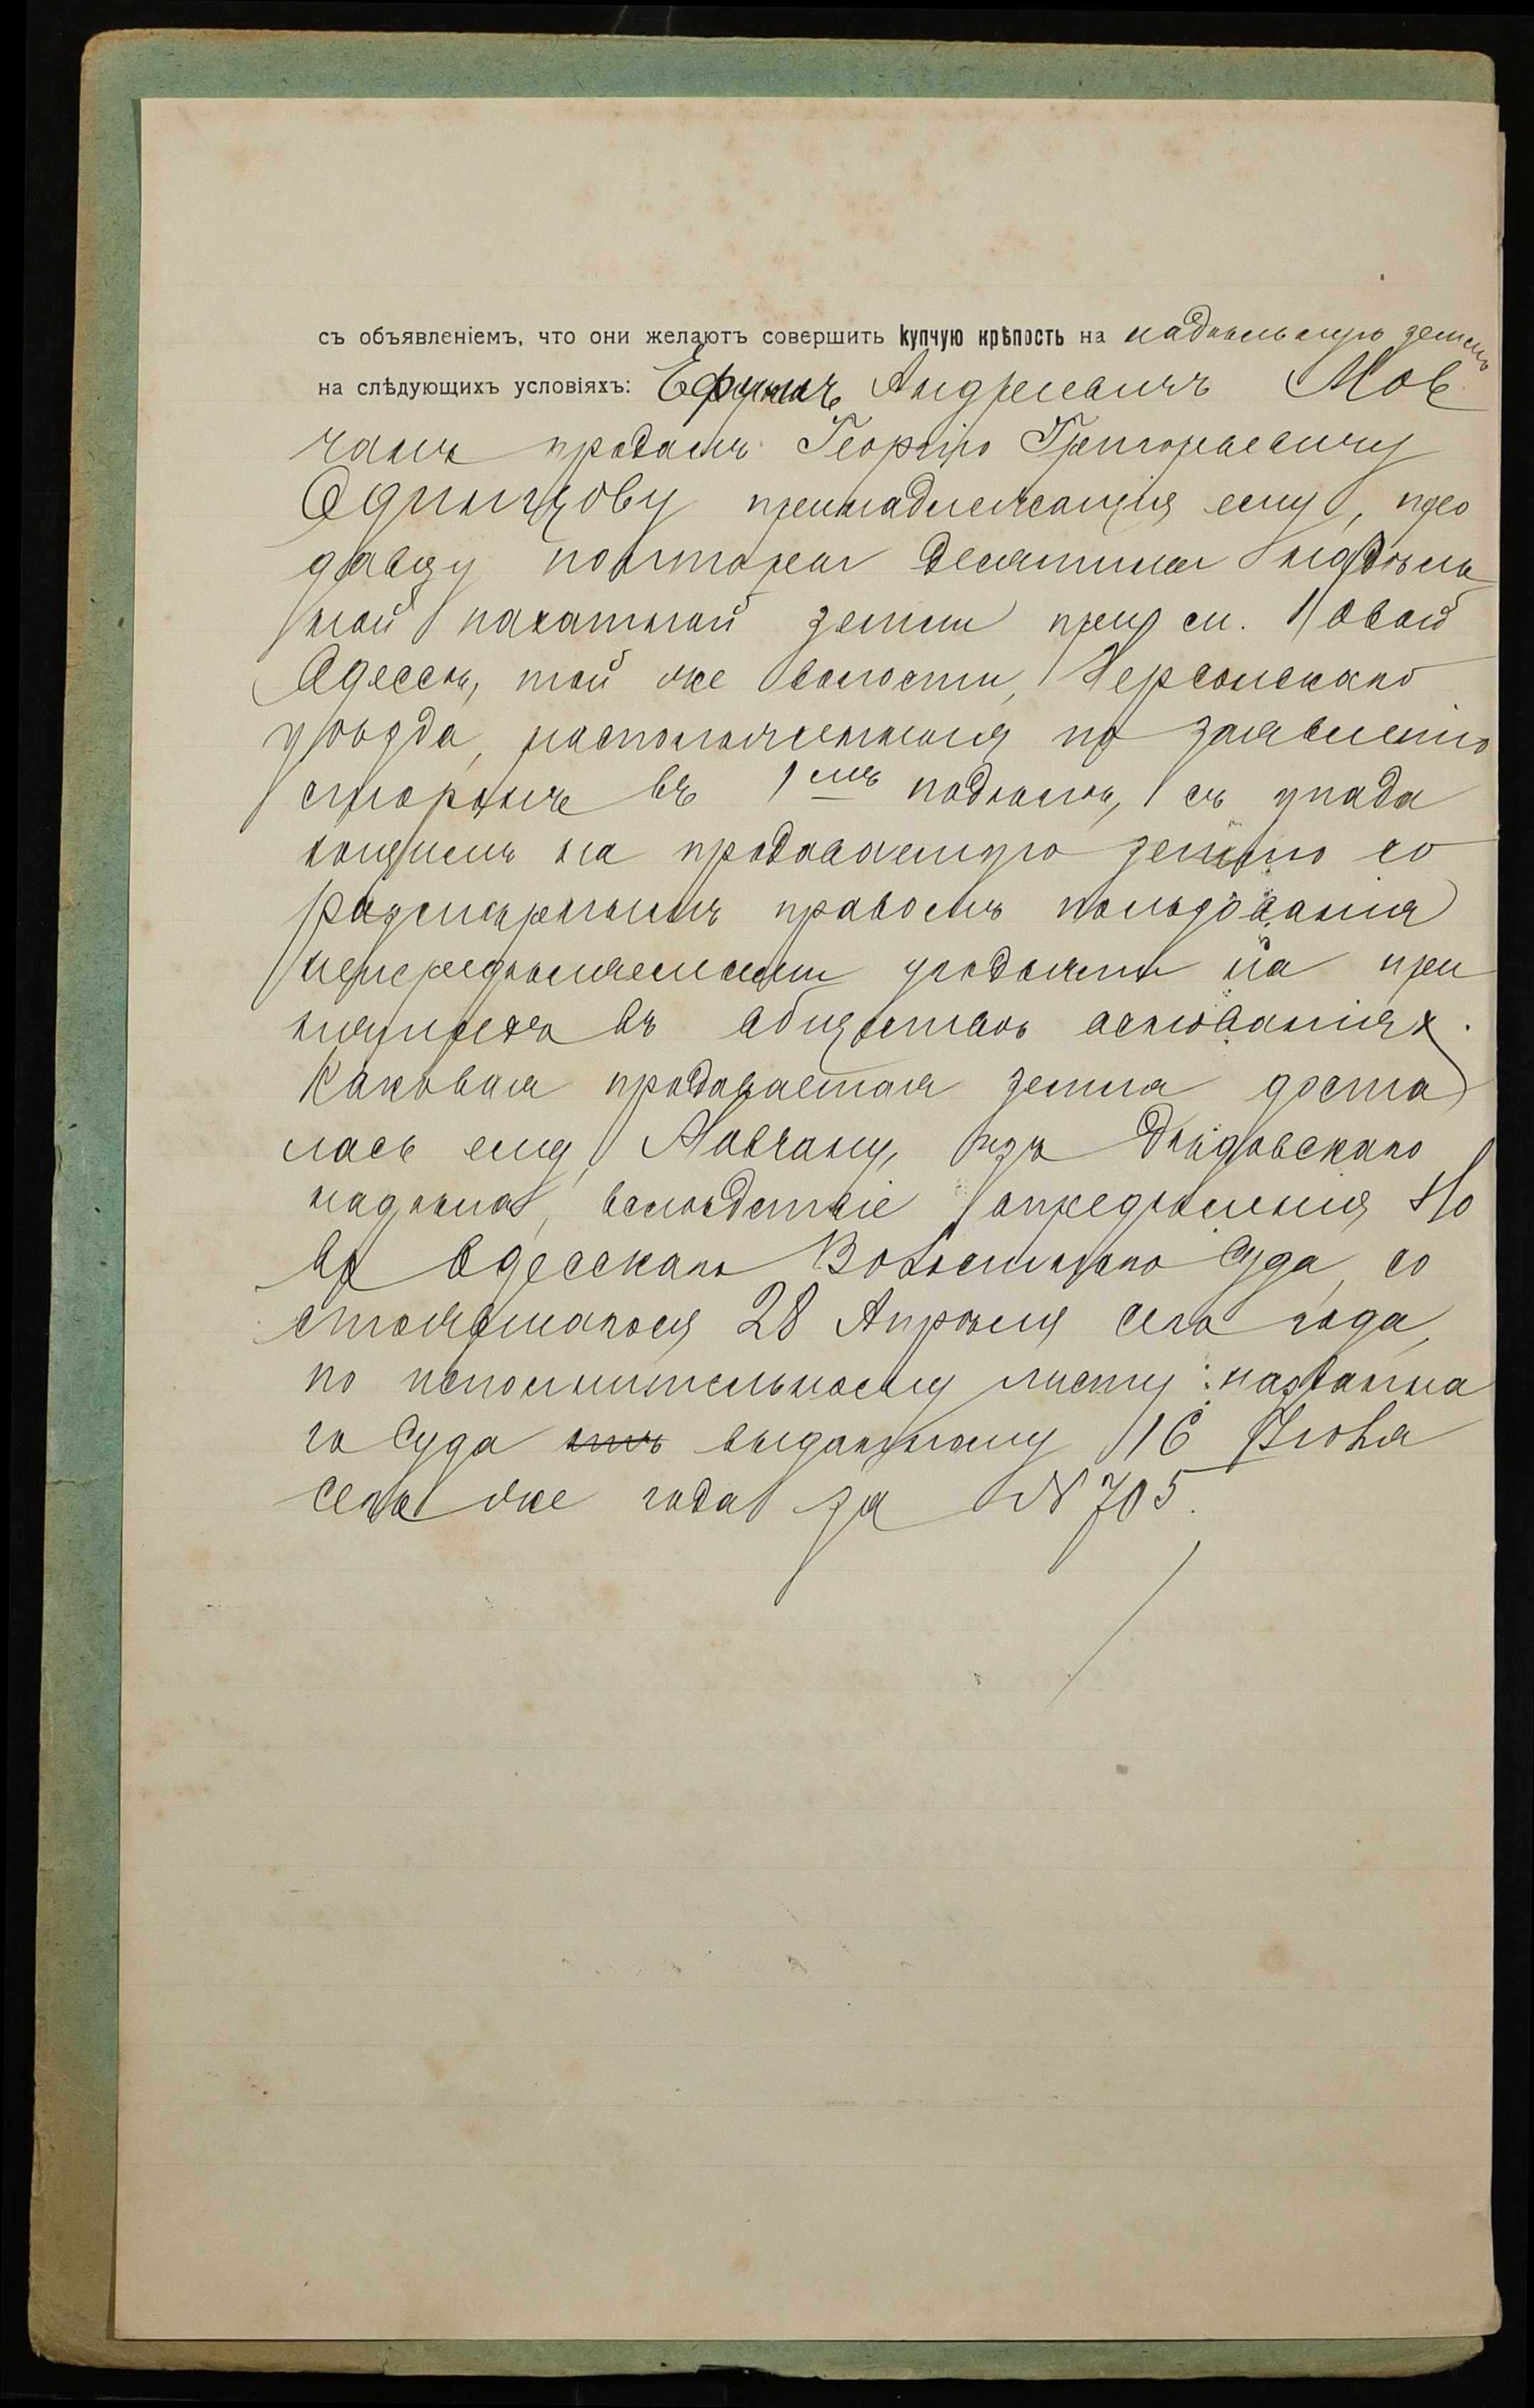 съ объявленіемъ, что они желаютъ совершить купчую крѣпость на надѣльную землю
на слѣдующихъ условіяхъ: Ефимъ Андреевичъ Мов
чанъ продалъ Георгію Григорьевичу
Одинцову принадлежащія ему, про
давцу полторы десятины надѣль
ной пахатной земли при м. Новой
Одессѣ, той же волости, Херсонскаго
уѣзда, расположенныя по заявленію
сторонъ въ 1мъ подѣлѣ, съ упада
ющимъ на продаваемую землю со
размѣрнымъ правомъ пользованія
непередѣляемыми угодьями на при
нятыхъ въ обществѣ основаніяхъ.
Каковая продаваемая земля доста
лась ему, Мовчану, изъ дѣдовскаго
надѣла, вслѣдствіе опредѣленія Но
во Одесскаго Волостнаго Суда, со
стоявшагося 28 Апрѣля сего года,
по исполнительному листу названна
го Суда выданному 16 Іюня
сего же года за № 705.